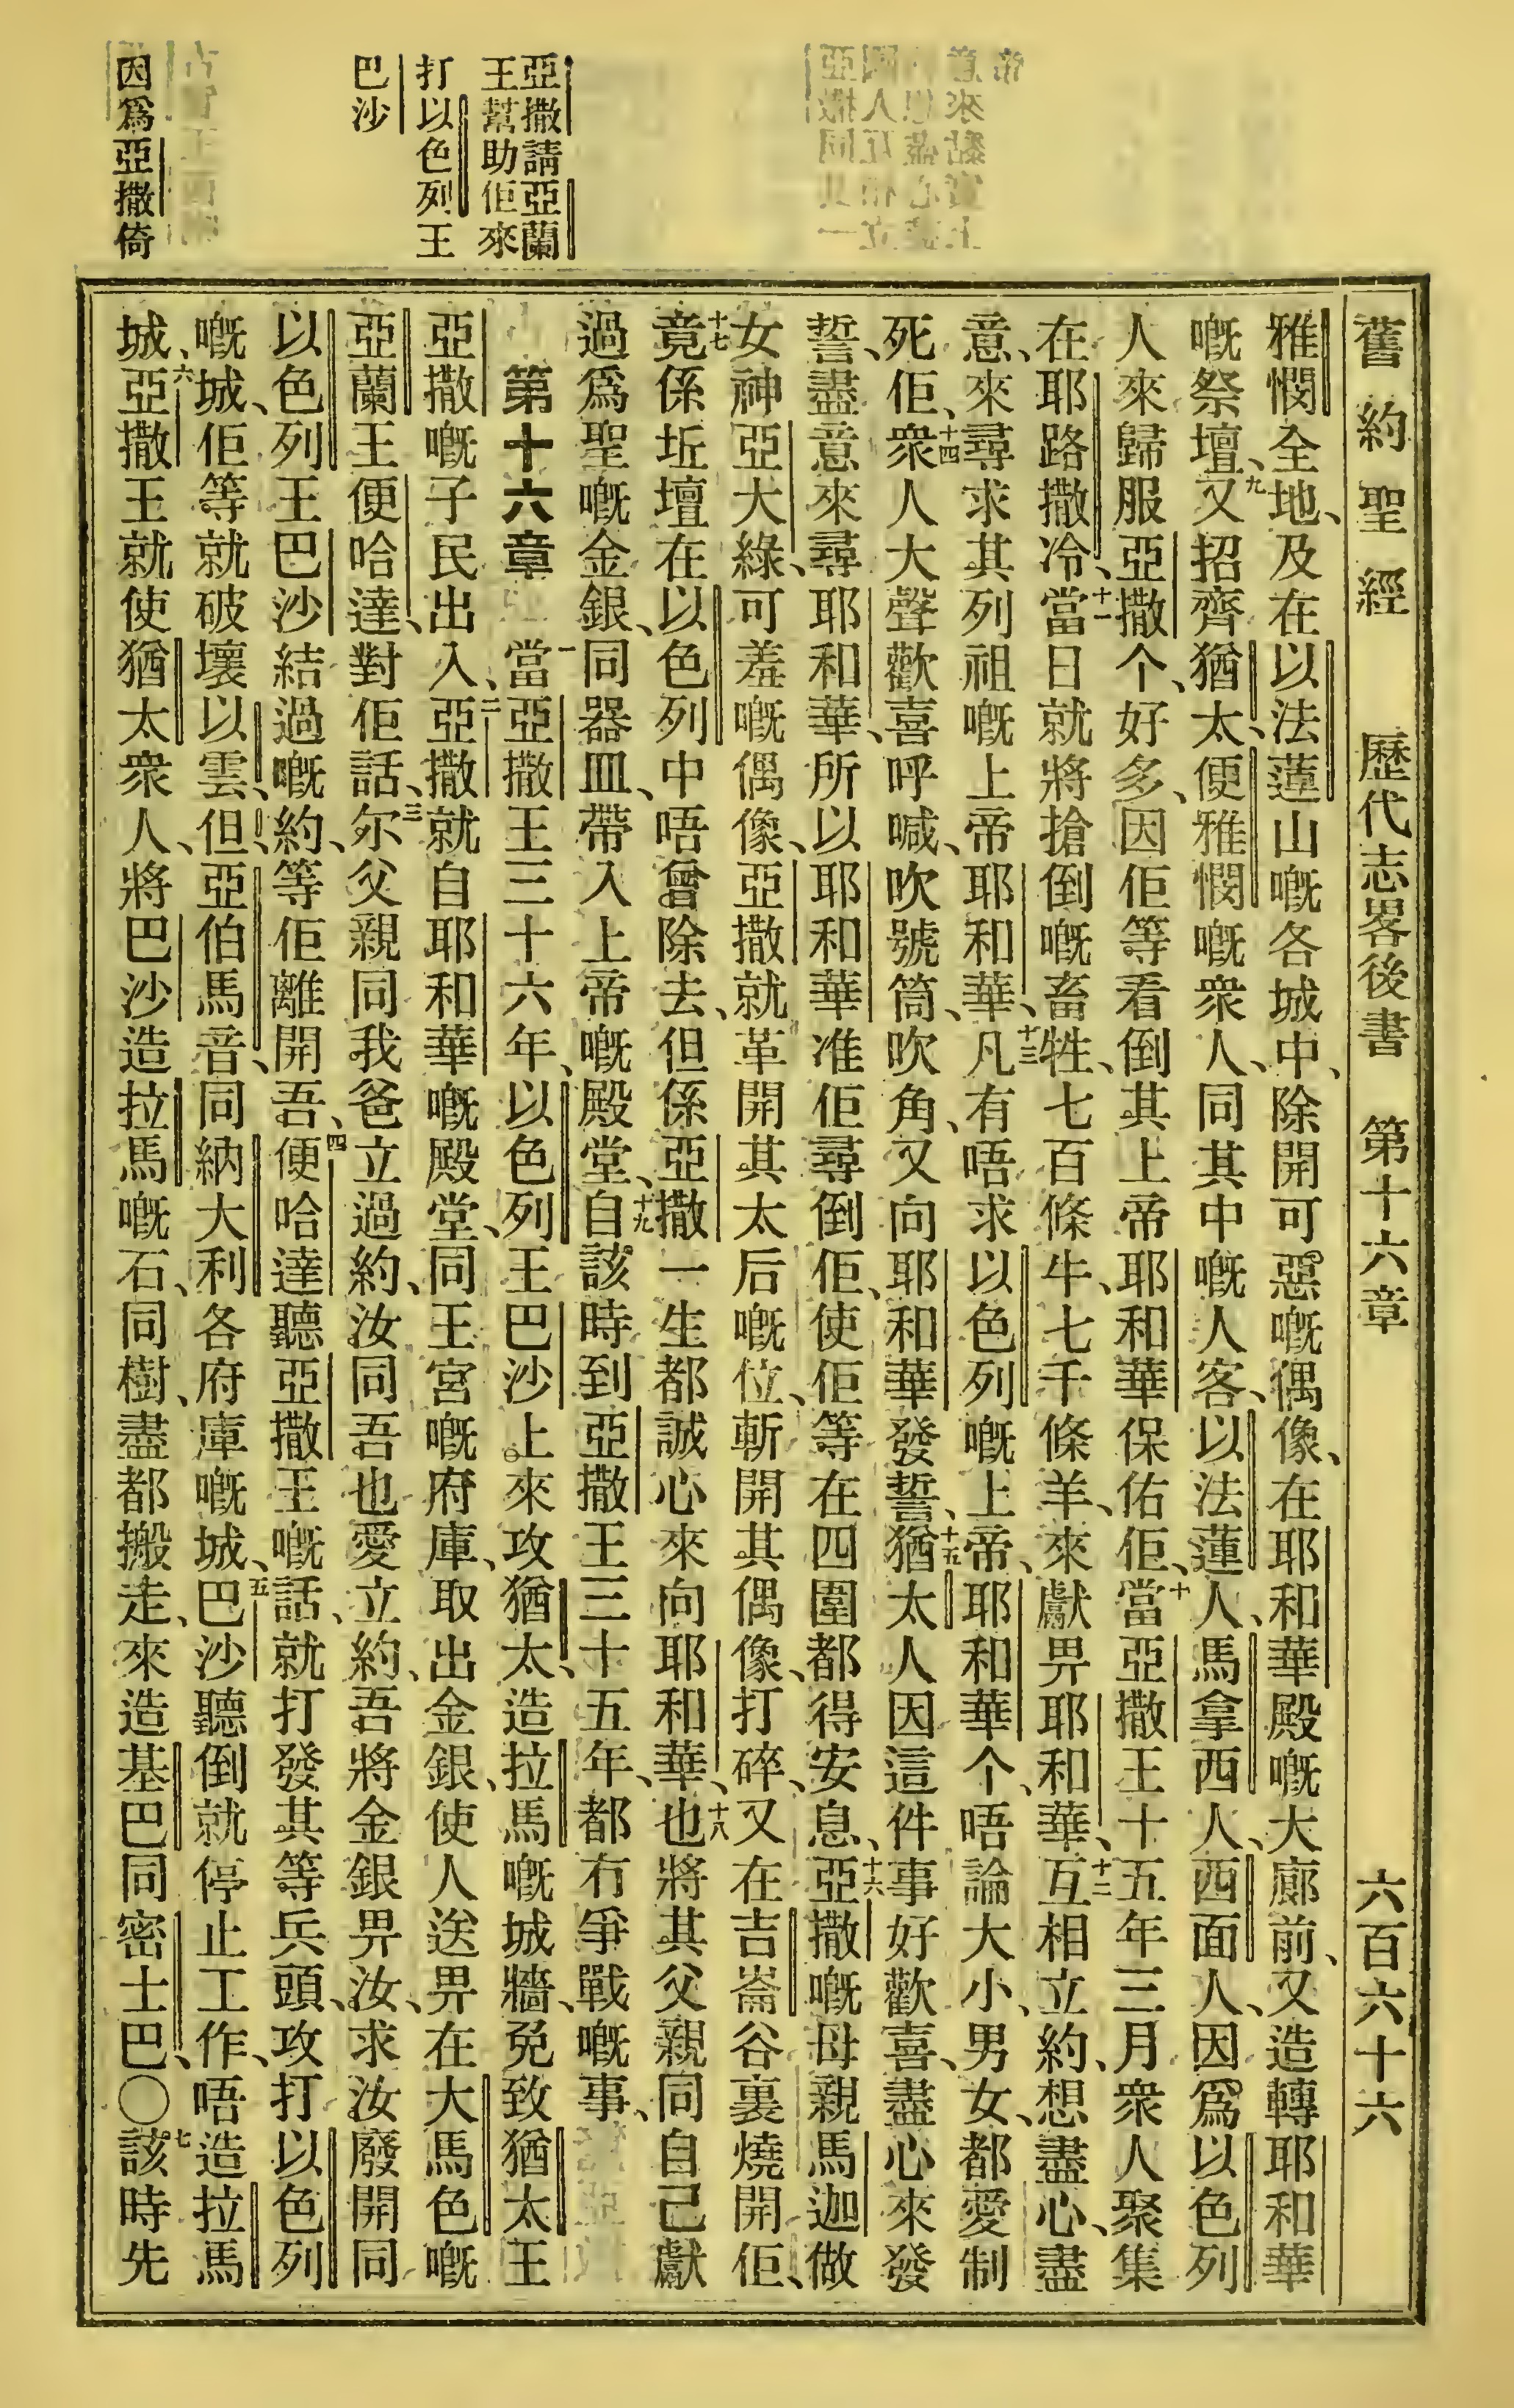 舊約聖經　歷代志畧後書　第十六章　六百六十六
雅憫全地、及在以法蓮山嘅各城中、除開可惡嘅偶像、在耶和華殿嘅大廊前、又造轉耶和華
嘅祭壇、九又招齊猶太、便雅憫嘅衆人、同其中嘅人客、以法蓮人、馬拿西人、西面人、因爲以色列
人來歸服亞撒个、好多、因佢等看倒其上帝耶和華保佑佢、十當亞撒王十五年三月衆人聚集
在耶路撒冷、十一當日就將搶倒嘅畜牲、七百條牛、七千條羊、來獻畀耶和華、十二互相立約、想盡心、盡
意、來尋求其列祖嘅上帝耶和華、十三凡有唔求以色列嘅上帝、耶和華个、唔論大小、男女、都愛制
死佢、十四衆人大聲歡喜呼喊、吹號筒、吹角、又向耶和華發誓、十五猶太人因這件事好歡喜、盡心來發
誓、盡意來尋耶和華、所以耶和華准佢尋倒佢、使佢等在四圍都得安息、十六亞撒嘅母親馬迦做
女神亞大綠、可羞嘅偶像、亞撒就革開其太后嘅位、斬開其偶像、打碎、又在吉崙谷裏燒開佢、
十七竟係坵壇在以色列中唔曾除去、但係亞撒一生都誠心來向耶和華、十八也將其父親同自己獻
過爲聖嘅金銀、同器皿、帶入上帝嘅殿堂、十九自該時到亞撒王三十五年、都冇爭戰嘅事、
第十六章　一當亞撒王三十六年、以色列王巴沙上來攻猶太、造拉馬嘅城牆、免致猶太王
亞撒嘅子民出入、二亞撒就自耶和華嘅殿堂、同王宮嘅府庫、取出金銀、使人送畀在大馬色嘅
亞蘭王便哈達、對佢話、三尔父親同我爸立過約、汝同吾也愛立約、吾將金銀畀汝、求汝廢開同
以色列王巴沙結過嘅約、等佢離開吾、四便哈達聽亞撒王嘅話、就打發其等兵頭、攻打以色列
嘅城、佢等就破壞以雲、但、亞伯馬音、同納大利各府庫嘅城、五巴沙聽倒就停止工作、唔造拉馬
城、六亞撒王就使猶太衆人、將巴沙造拉馬嘅石、同樹、盡都搬走、來造基巴同密士巴、〇七該時先
亞撒請亞蘭
王幫助佢來
打以色列王
巴沙
因爲亞撒倚